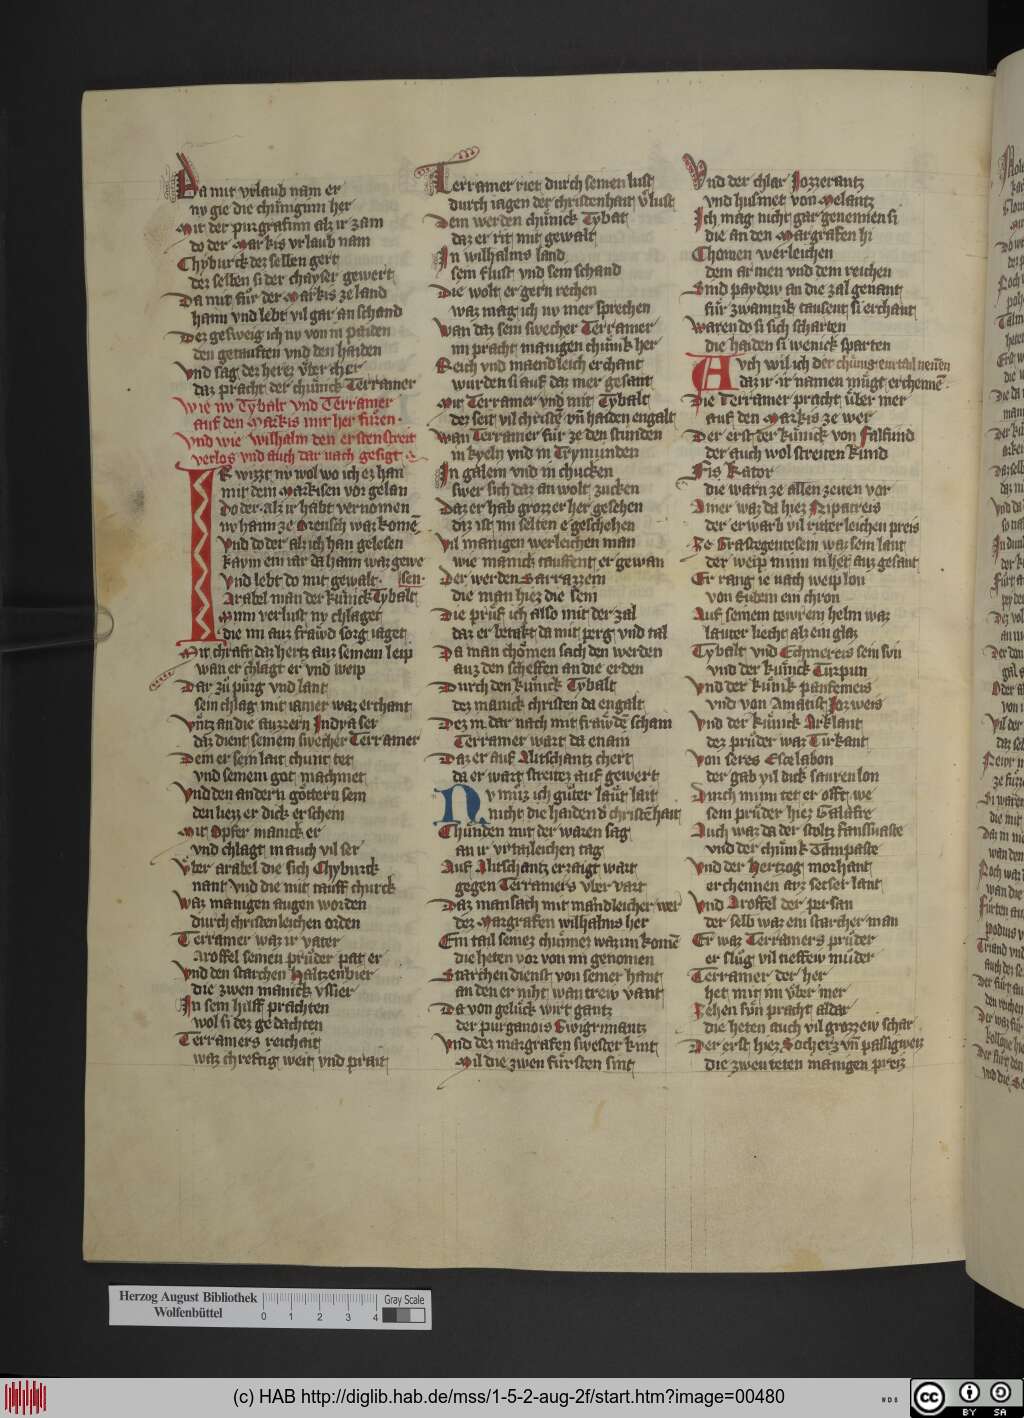 Da mit vrlaub nam er
ny gie die chüniginn her
Mit der purgrafinn alz ir zam
do der Markis vrlaub nam
Chyburck dez selben gert
der selben si der chayser gewert
Da mit für der Markis ze land
hann vnd lebt vil gar an schand
Dez gesweig ich ny von in paiden
den getauften vnd den haiden
Vnd sag dez herez vber
daz pracht der chünick Terramer
Wie ny Tybalt vnd Terramer
auf den Markis mit her füren.
Vnd wie wilhalm den ersten streit
verlos vnd auch dar nach gesigt
IR wizzt ny wol wo ich ez han
mit dem Markisen vor gelan
Do der alz ir habt vernomen
ny hann ze Orensch waz komē
Vnd do der alz ich han gelesen
kaym ein iar da haim waz gewe
Vnd lebt do mit gewalt. sen.
Arabel man der künick Tybalt
Minn verlust ny chlaget
die im auz frawd sorg iaget
Mit chraft daz hertz auz seinem leip
wan er chlagt er vnd weip
Dar zü pürg vnd lant
sein chlag mit iamer waz erchant
Vntz an die auzzern Indya ser
daz dient seinem swecher Terramer
Dem er sein lait chunt tet
vnd seinem got machmet
Vnd den andern göttern sein
den liezz er dick erschein
Mit Opfer manick er
vnd chlagt in auch vil ser
Vber arabel die sich Chyburck
nant vnd die mit tauff churck
Waz manigen augen worden
durch christenleichen orden
Terramer waz ir vater
Aroffel seinen prüder pat er
Vnd den starchen Haltzenbier
die zwen manick vssier
In sein hilff prachten
wol si dez gedachten
Terramers reichait
waz chreftig weit vnd prait
Terramer riet durch seinen lust
durch iagen der christenhait vlust
Dem werden chünick Tybat
daz er rit mit gewalt
In wilhalms land
sein flust vnd sein schand
Die wolt er gern rechen
waz mag ich ny mer sprechen
Wan daz sein swecher Terramer
im pracht manigen chünik her
Reich vnd maendleich erchant
wurden si auf daz mer gesant
Mit Terramer vnd mit Tybalt
der seit vil christē vn̄ haiden engalt
Wan Terramer für ze den stunden
in kyeln vnd in Trymunden
In galein vnd in chucken
swer sich dar an wolt zucken
Daz er hab grozzer her gesehen
daz ist im selten e geschehen
Vil manigen werleichen man
wie manick tausent er gewan
Der werden Sarrazzein
die man hiez die sein
Die prüf ich also mit der zal
daz er betakt da mit perg vnd tal
Da man chömen sach den werden
auz den scheffen an die erden
Durch den künick Tybalt
dez manick christen da engalt
Dez in dar nach mit frawde scham
Terramer wart da enam
Daz er auf Alitschantz chert
da er wart streitez auf gewert
NV müz ich güter laüt lait
nicht die haiden d christēhait
Chünden mit der waren sag
an ir vrtailleichen tag
Auf Alitschantz erzaigt wart
gegen Terramers vber vart
Daz man sach mit mandleicher wer
dez Margrafen wilhalms her
Ein tail seinez chümez waz im komē
die heten vor von im genomen
Starchen dienst von seiner hant
an den er niht wan trew vant
Da von gelück wirt gantz
der purganois Ewigrimantz
Vnd dez margrafen swester kint
Mil die zwen fürsten sint
Vnd der chlar Jozzerantz
vnd husinet von Melantz
Ich mag nicht gar genennen si
die an den Margrafen hi
Chomen werleichen
dem armen vnd dem reichen
Sind paydew an die zal genant
für zwaintzik tausent si erchant
Waren do si sich scharten
die haiden si wenick sparten
AVch wil ich der chünig ein tail nenēn
daz ir ir namen mügt erchennē.
Die Terramer pracht über mer
auf den Markis ze wer
Der erst der künick von Falfund
der auch wol streiten kund
Fis kator
die warn ze allen zeiten vor
Amer waz da hiez Nipatreis
der erwarb vil ritterleichen preis
Ze Grastegentesein waz sein lant
der weip minn in het auz gesant
Er rang ie nach weip lon
von Eubein ein chron
Auf seinem tewrem helm waz
lauter liecht alz ein glaz
Tybalt vnd Echmereis sein sün
vnd der künick Turpun
Vnd der künik panfemeis
vnd von Amatist Jozweis
Vnd der künick Arklant
dez prüder waz Turkant
Von seres Escelabon
der gab vil dick sauren lon
Durch minn tet er offt we
sein prüder hiez Galafre
Auch waz da der stoltz fanssuaste
vnd der chünik Tampaste
Vnd der hertzog morhant
erchennen avz setset lant
Vnd Aroffel der persan
der selb waz ein starcher man
Er waz Terramers prüder
er slüg vil neffew müder
Terramer der her
het mit im vber mer
Zehen sün pracht aldar
die heten auch vil grozzew schar
Der erst hiez Socherz vn̄ passigweiz
die zwen teten manigen preiz
Herzog August Bibliothek
Wolfenbüttel
0 1 2 3 4
Gray Scale
(c) HAB http://diglib.hab.de/mss/1-5-2-aug-2f/start.htm?image=00480
WDB
cc BY SA